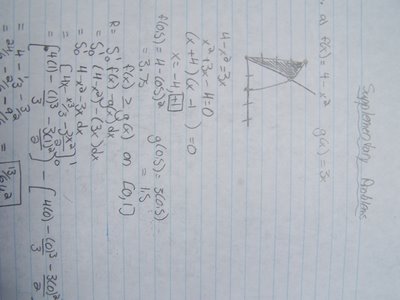 Supplementary Problems
a. f(x) = 4 - x² g(x) = 3x
4 - x² = 3x
x² + 3x - 4 = 0
(x + 4)(x - 1) = 0
x = -4, +1
f(0.5) = 4 - (0.5)² g(0.5) = 3(0.5)
= 3.75 = 1.5
f(x) ≥ g(x) on [0,1]
R = ∫₀¹ f(x) - g(x) dx
= ∫₀¹ (4 - x²) - (3x) dx
= ∫₀¹ 4 - x² - 3x dx
= [4x - x³/3 - 3x²/2]₀¹
= [4(1) - (1)³/3 - 3(1)²/2] - [4(0) - (0)³/3 - 3(0)²/2]
= 4 - 1/3 - 3/2
= 24/6 - 2/6 - 9/6 = 13/6 u²